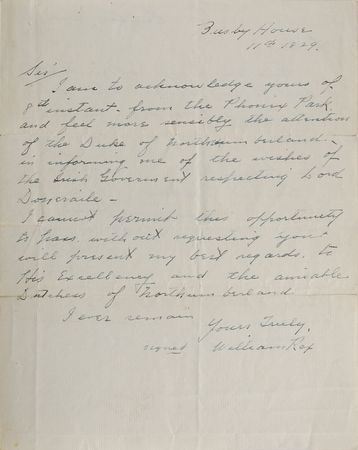 Busby House
11th 1829.
Sir/
I am to acknowledge yours of
8th instant - from the Phonix Park
and feel more sensibly the attention
of the Duke of Northumberland -
in informing me of the wishes of
the Irish Government respecting Lord
Doneraile -
I cannot permit this opportunity
to pass without requesting you
will present my best regards to
His Excellency and the amiable
Dutchess of Northumberland
I ever remain
Yours Truly,
signed William Rex